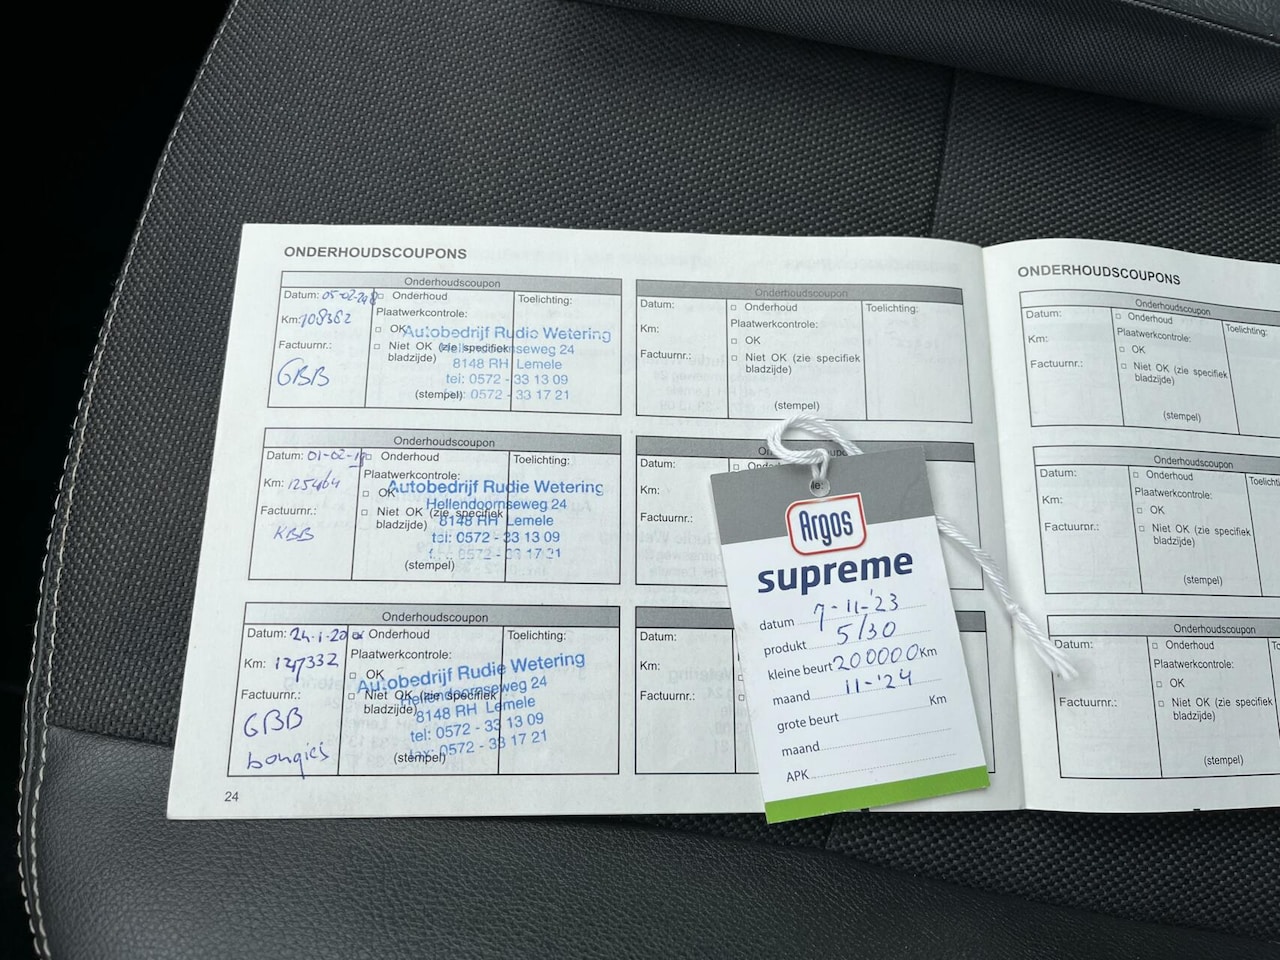 ONDERHOUDSCOUPONS
Onderhoudscoupon
Datum: 05-02-
Onderhoud
Toelichting:
Km: 108382
Plaatwerkcontrole:
OK
Factuurnr.:
Niet OK (zie specifiek
bladzijde)
GBB
(stempel)
Autobedrijf Rudie Wetering
Hellendoornseweg 24
8148 RH Lemele
tel: 0572 - 33 13 09
fax: 0572 - 33 17 21
Onderhoudscoupon
Datum: 01-02-
Onderhoud
Toelichting:
Km: 125464
Plaatwerkcontrole:
OK
Factuurnr.:
Niet OK (zie specifiek
bladzijde)
KBB
(stempel)
Autobedrijf Rudie Wetering
Hellendoornseweg 24
8148 RH Lemele
tel: 0572 - 33 13 09
fax: 0572 - 33 17 21
Onderhoudscoupon
Datum: 24-1-20
Onderhoud
Toelichting:
Km: 147332
Plaatwerkcontrole:
OK
Factuurnr.:
Niet OK (zie specifiek
bladzijde)
GBB
bougies
(stempel)
Autobedrijf Rudie Wetering
Hellendoornseweg 24
8148 RH Lemele
tel: 0572 - 33 13 09
fax: 0572 - 33 17 21
24
Onderhoudscoupon
Datum:
Onderhoud
Toelichting:
Km:
Plaatwerkcontrole:
OK
Factuurnr.:
Niet OK (zie specifiek
bladzijde)
(stempel)
Datum:
Km:
Factuurnr.:
Datum:
Km:
Factuurnr.:
Argos
supreme
datum 7-11-'23
produkt 5/30
kleine beurt 200000 Km
maand 11-'24
grote beurt Km
maand
APK
ONDERHOUDSCOUPONS
Onderhoudscoupon
Datum:
Onderhoud
Toelichting:
Km:
Plaatwerkcontrole:
OK
Factuurnr.:
Niet OK (zie specifiek
bladzijde)
(stempel)
Onderhoudscoupon
Datum:
Onderhoud
Km:
Plaatwerkcontrole:
OK
Factuurnr.:
Niet OK (zie specifiek
bladzijde)
(stempel)
Onderhoudscoupon
Datum:
Onderhoud
Km:
Plaatwerkcontrole:
OK
Factuurnr.:
Niet OK (zie specifiek
bladzijde)
(stempel)